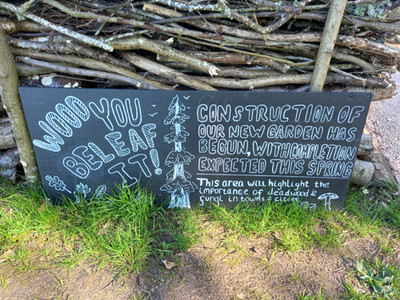 WOOD YOU
BELEAF
IT!
CONSTRUCTION OF
OUR NEW GARDEN HAS
BEGUN, WITH COMPLETION
EXPECTED THIS SPRING
This area will highlight the
importance of deadwood &
fungi in towns & cities